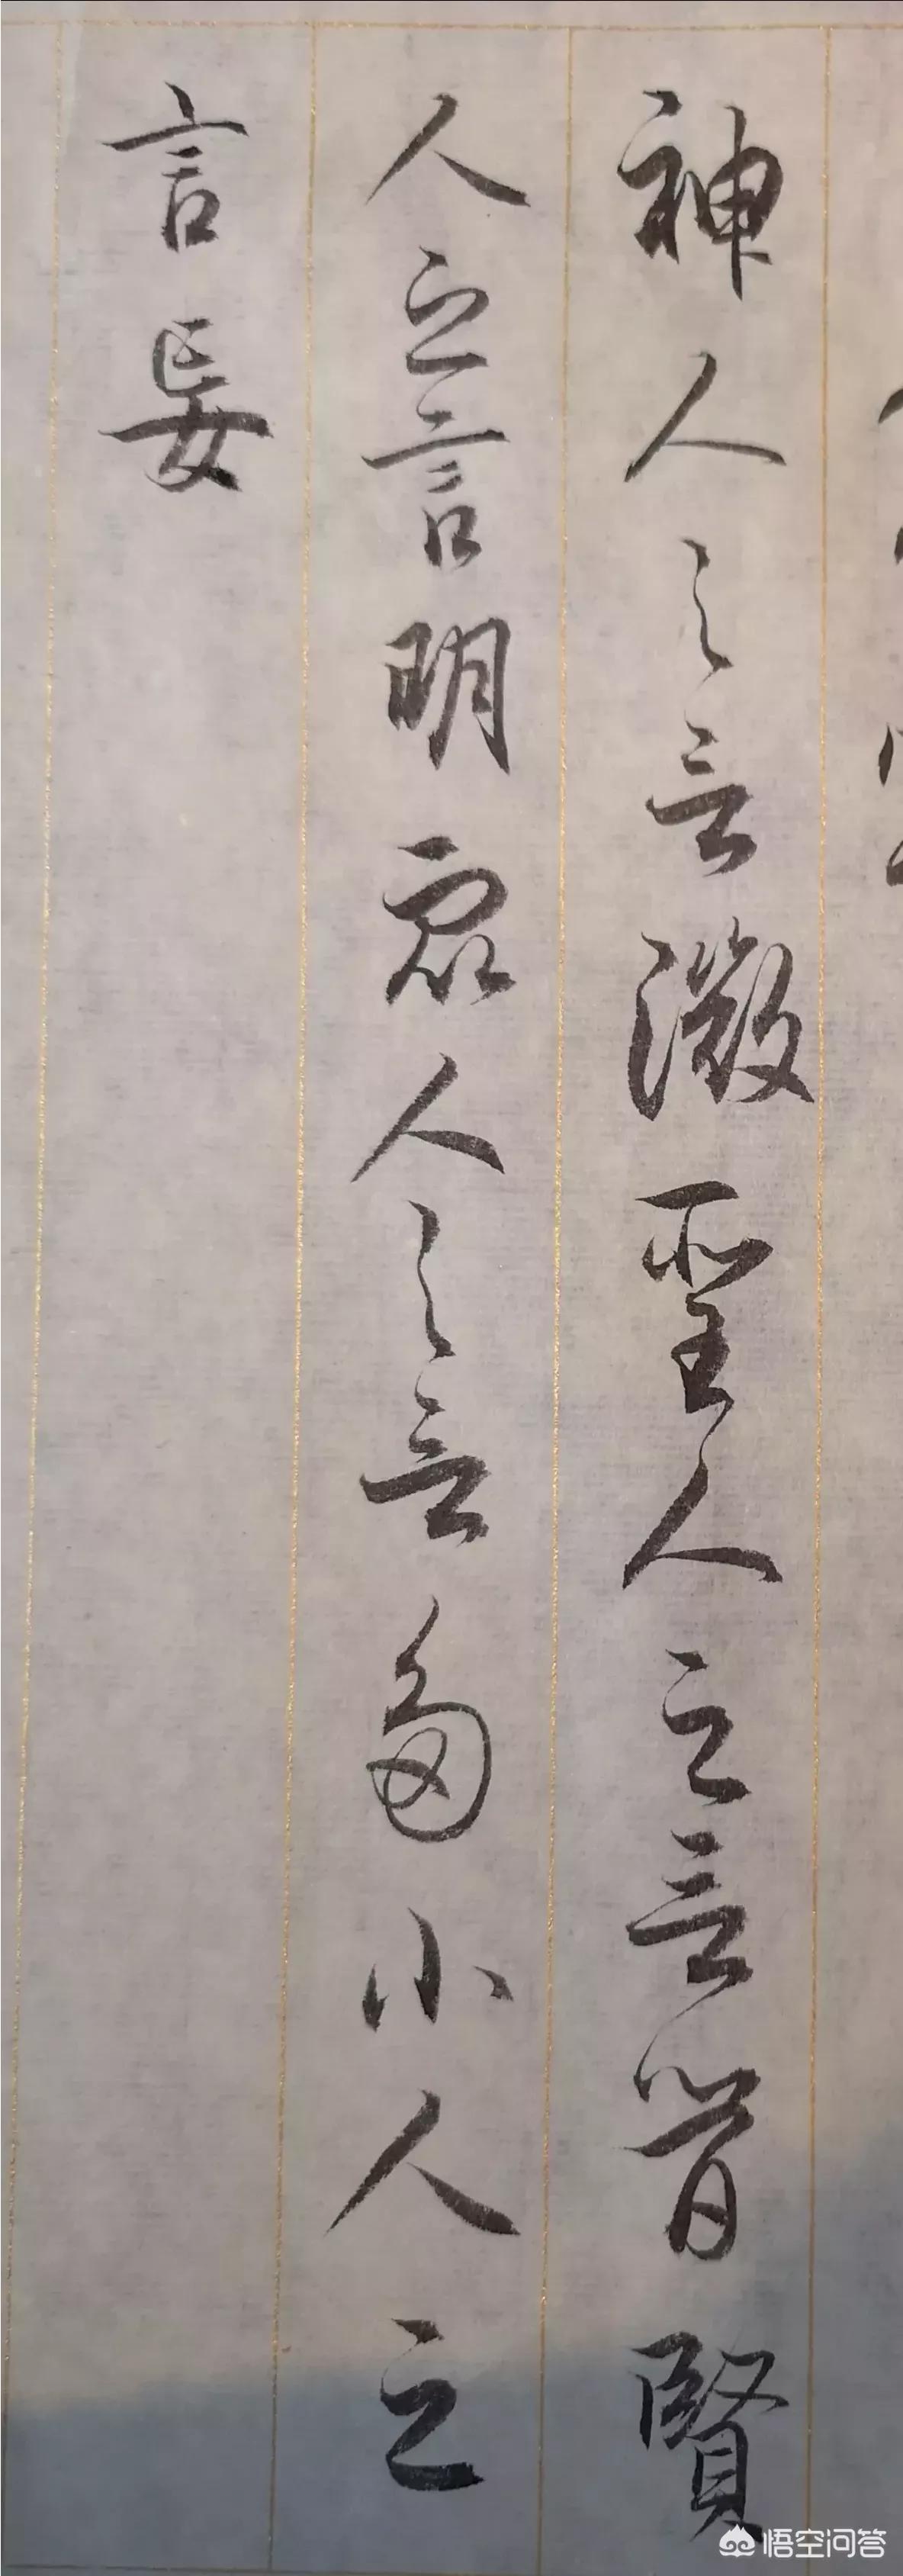 神人之言微聖人之言簡賢
人之言明眾人之言多小人之
言妄
悟空问答